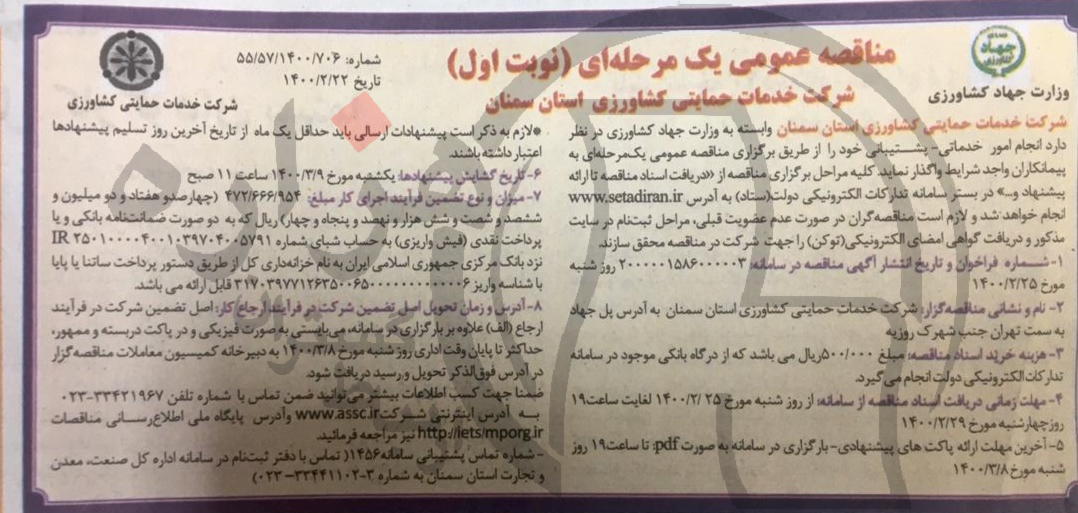 مناقصه عمومی یک مرحله‌ای (نوبت اول)
شرکت خدمات حمایتی کشاورزی استان سمنان
جهاد کشاورزی
وزارت جهاد کشاورزی
شماره: ۵۵/۵۷/۱۴۰۰/۷۰۶
تاریخ ۱۴۰۰/۲/۲۲
شرکت خدمات حمایتی کشاورزی
شرکت خدمات حمایتی کشاورزی استان سمنان وابسته به وزارت جهاد کشاورزی در نظر
دارد انجام امور خدماتی- پشتیبانی خود را از طریق برگزاری مناقصه عمومی یک‌مرحله‌ای به
پیمانکاران واجد شرایط واگذار نماید. کلیه مراحل برگزاری مناقصه از «دریافت اسناد مناقصه تا ارائه
پیشنهاد و...» در بستر سامانه تدارکات الکترونیکی دولت(ستاد) به آدرس www.setadiran.ir
انجام خواهد شد و لازم است مناقصه‌گران در صورت عدم عضویت قبلی، مراحل ثبت‌نام در سایت
مذکور و دریافت گواهی امضای الکترونیکی(توکن) را جهت شرکت در مناقصه محقق سازند.
۱-شماره فراخوان و تاریخ انتشار آگهی مناقصه در سامانه: ۲۰۰۰۰۰۱۵۸۶۰۰۰۰۰۳ روز شنبه
مورخ ۱۴۰۰/۲/۲۵
۲- نام و نشانی مناقصه‌گزار: شرکت خدمات حمایتی کشاورزی استان سمنان به آدرس پل جهاد
به سمت تهران جنب شهرک روزیه
۳- هزینه خرید اسناد مناقصه: مبلغ ۵۰۰/۰۰۰ریال می باشد که از درگاه بانکی موجود در سامانه
تدارکات الکترونیکی دولت انجام می‌گیرد.
۴- مهلت زمانی دریافت اسناد مناقصه از سامانه: از روز شنبه مورخ ۲۵ /۱۴۰۰/۲ لغایت ساعت۱۹
روزچهارشنبه مورخ ۱۴۰۰/۲/۲۹
۵- آخرین مهلت ارائه پاکت های پیشنهادی- بارگزاری در سامانه به صورت pdf: تا ساعت۱۹ روز
شنبه مورخ۱۴۰۰/۳/۸
*لازم به ذکر است پیشنهادات ارسالی باید حداقل یک ماه از تاریخ آخرین روز تسلیم پیشنهادها
اعتبار داشته باشند.
۶- تاریخ گشایش پیشنهادها: یکشنبه مورخ ۱۴۰۰/۳/۹ ساعت ۱۱ صبح
۷- میزان و نوع تضمین فرآیند اجرای کار مبلغ: ۴۷۲/۶۶۶/۹۵۴ (چهارصدو هفتاد و دو میلیون و
ششصد و شصت و شش هزار و نهصد و پنجاه و چهار) ریال که به دو صورت ضمانت‌نامه بانکی و یا
پرداخت نقدی (فیش واریزی) به حساب شبای شماره IR ۲۵۰۱۰۰۰۰۴۰۰۱۰۳۹۷۰۴۰۰۵۷۹۱
نزد بانک مرکزی جمهوری اسلامی ایران به نام خزانه‌داری کل از طریق دستور پرداخت ساتنا یا پایا
با شناسه واریز قابل ارائه می باشد.
۸- آدرس و زمان تحویل اصل تضمین شرکت در فرآیند ارجاع کار: اصل تضمین شرکت در فرآیند
ارجاع (الف) علاوه بر بارگزاری در سامانه، می‌بایستی به صورت فیزیکی و در پاکت دربسته و ممهور،
حداکثر تا پایان وقت اداری روز شنبه مورخ ۱۴۰۰/۳/۸ به دبیرخانه کمیسیون معاملات مناقصه گزار
در آدرس فوق‌الذکر تحویل و رسید دریافت شود.
ضمنا جهت کسب اطلاعات بیشتر می‌توانید ضمن تماس با شماره تلفن ۳۳۴۲۱۹۶۷-۰۲۳
به آدرس اینترنتی شرکت www.assc.ir وآدرس پایگاه ملی اطلاع‌رسانی مناقصات
http://iets/mporg.ir نیز مراجعه فرمائید.
- شماره تماس پشتیبانی سامانه۱۴۵۶( تماس با دفتر ثبت‌نام در سامانه اداره کل صنعت، معدن
و تجارت استان سمنان به شماره ۳-۳۳۴۴۱۱۰۲- ۰۲۳)